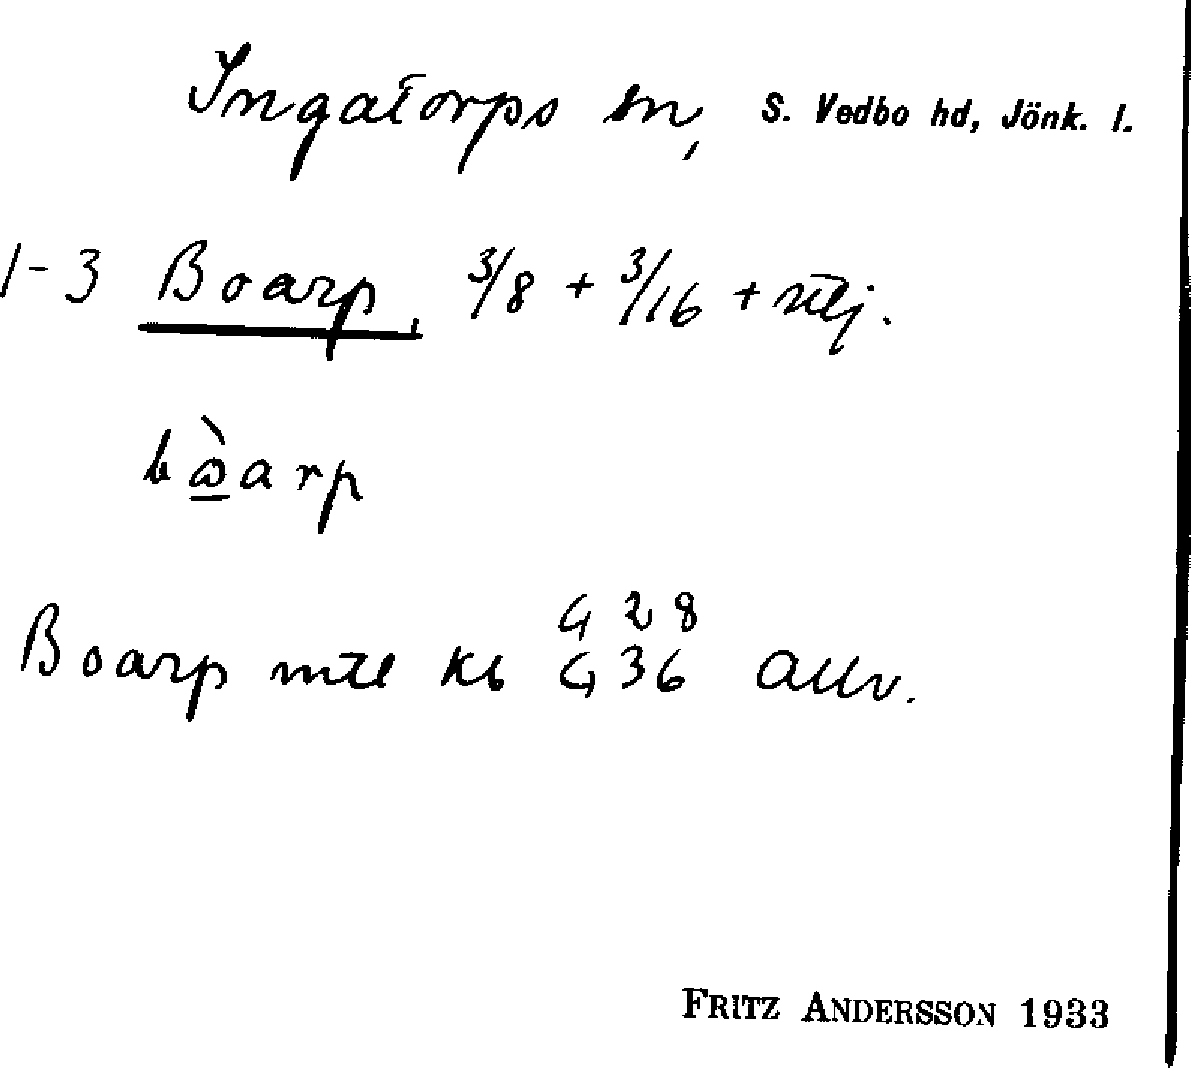 Ingatorps sn, S. Vedbo hd, Jönk. l.
1-3 Boarp, 3/8 + 3/16 + utj.
Boarp mtl kb G 28
G 36 allv.
FRITZ ANDERSSON 1933